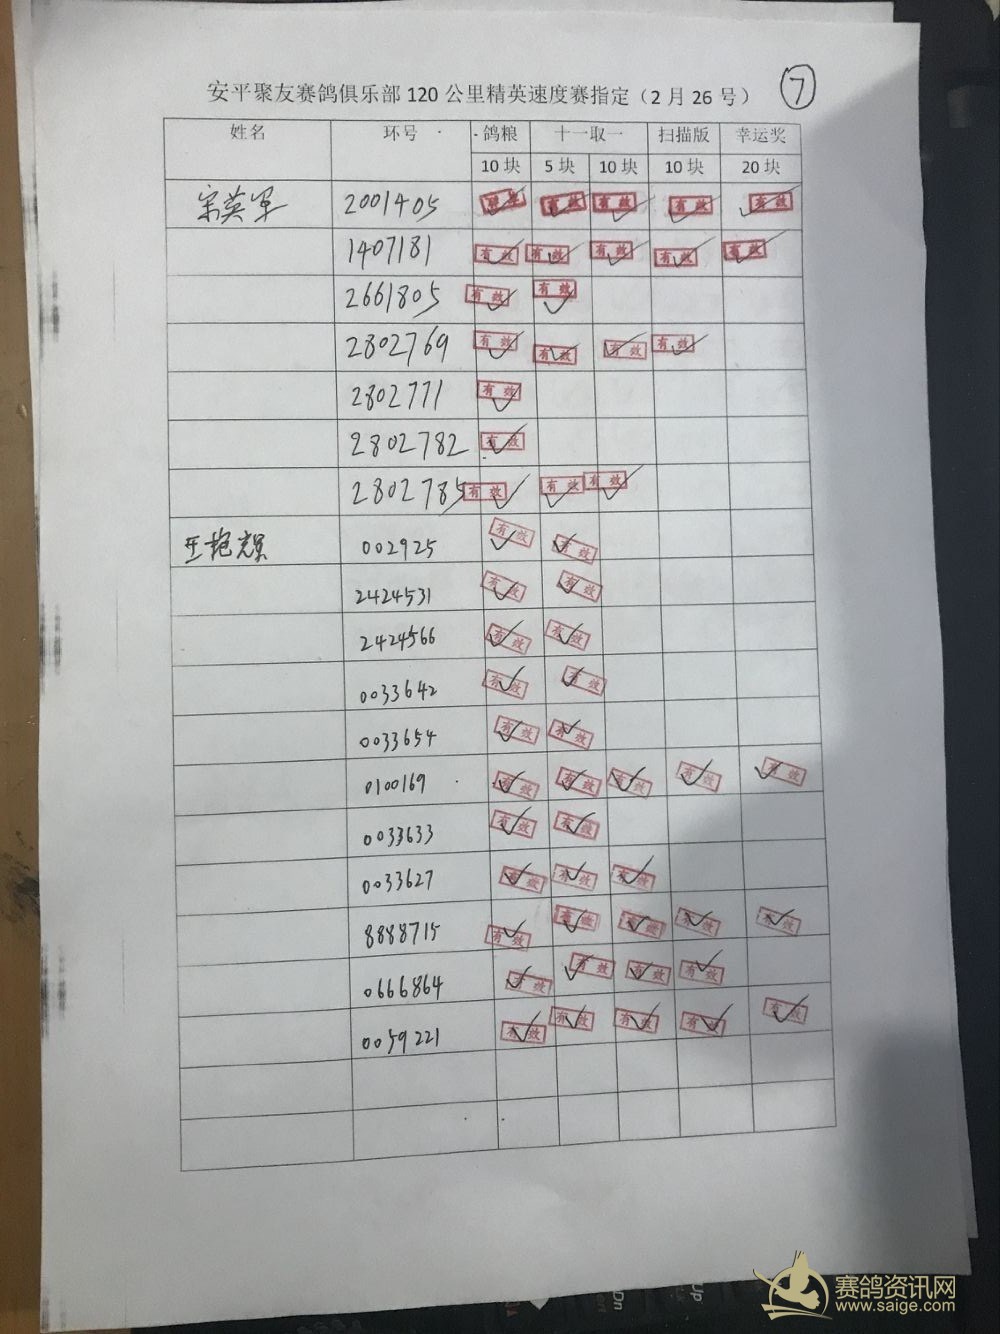 安平聚友赛鸽俱乐部 120 公里精英速度赛指定（2 月 26 号） 7
姓名 环号 鸽粮 十一取一 扫描版 幸运奖
10 块 5 块 10 块 10 块 20 块
宋英军 2001405 有效 有效 有效 有效
1407181 有效 有效 有效 有效 有效
2661805 有效 有效
2802769 有效 有效 有效 有效
2802771 有效
2802782 有效
2802785 有效 有效 有效
王艳 002925 有效 有效
2424531 有效 有效
2424566 有效 有效
0033642 有效 有效
0033654 有效 有效
0100169 有效 有效 有效 有效 有效
0033633 有效 有效
0033627 有效 有效 有效
8888715 有效 有效 有效 有效 有效
0666864 有效 有效 有效 有效
0059221 有效 有效 有效 有效 有效
Up
Dn
赛鸽资讯网
www.saige.com